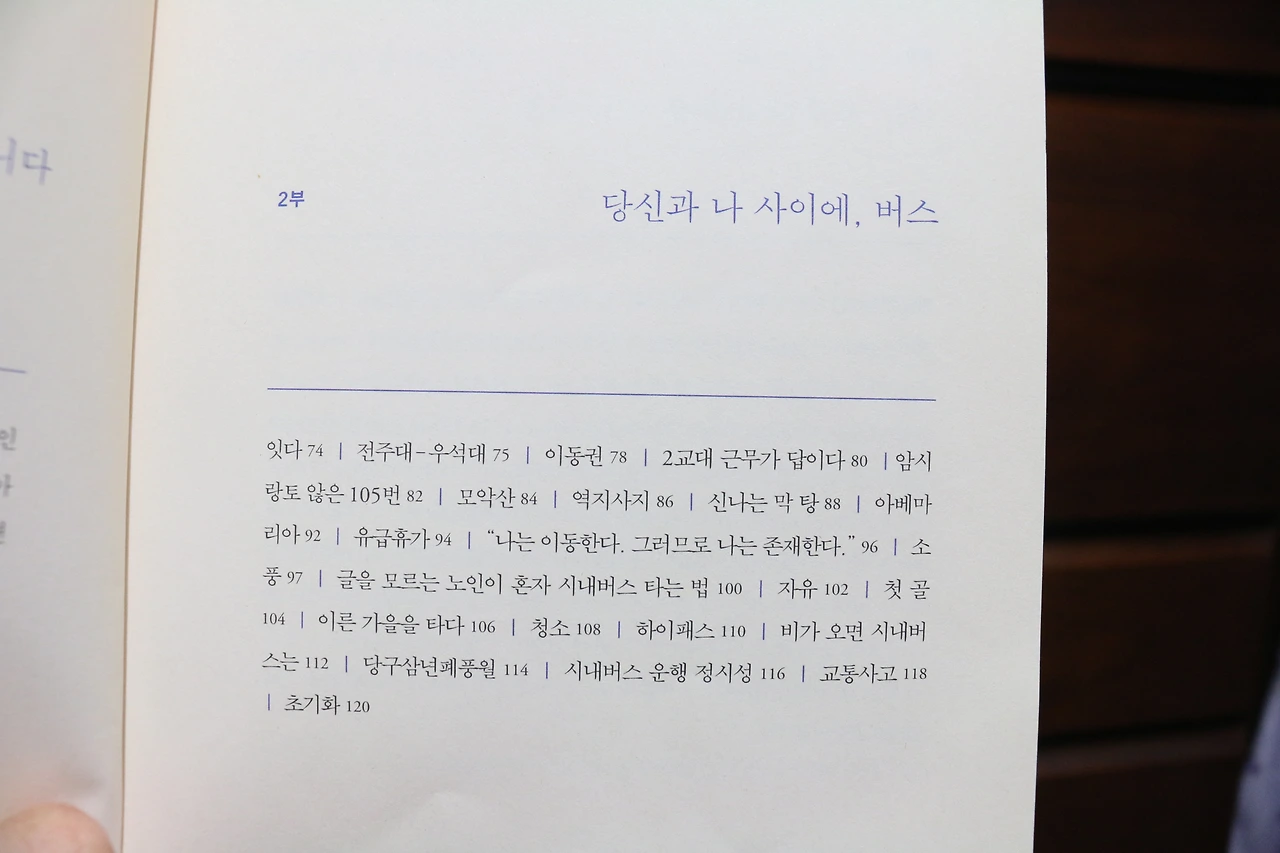 니다
인
2부
당신과 나 사이에, 버스
잇다 74 | 전주대-우석대 75 | 이동권 78 | 2교대 근무가 답이다 80 | 암시
랑토 않은 105번 82 | 모악산 84 | 역지사지 86 | 신나는 막 탕 88 | 아베마
리아 92 | 유급휴가 94 | “나는 이동한다. 그러므로 나는 존재한다.” 96 | 소
풍 97 | 글을 모르는 노인이 혼자 시내버스 타는 법 100 | 자유 102 | 첫 골
104 | 이른 가을을 타다 106 | 청소 108 | 하이패스 110 | 비가 오면 시내버
스는 112 | 당구삼년폐풍월 114 | 시내버스 운행 정시성 116 | 교통사고 118
| 초기화 120